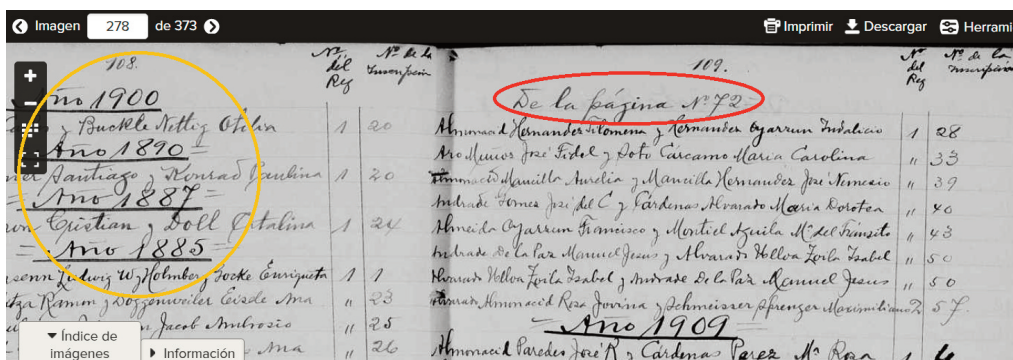 Imagen 278 de 373
Imprimir Descargar Herrami
108.
Nº del Reg
Nº de la Inscripción
Año 1900
y Buckle Nettig Otilia 1 20
= Año 1890 =
Santiago y Konrad Paulina 1 20
= Año 1887 =
Cristian y Doll Catalina 1 24
= Año 1885 =
Ludwig W y Holmberg Jocke Enriqueta 1 1
Ramon y Doggenweiler Ana " 23
Jacob Ambrosio " 25
Ana " 26
Índice de imágenes
Información
109.
Nº del Reg
Nº de la Inscripción
De la página Nº 72
Almonacid Hernandez Filomena y Hernandez Oyarzun Indalicio 1 28
Aro Muños José Fidel y Soto Cárcamo Maria Carolina " 33
Almonacid Mancilla Aurelia y Mancilla Hernandez José Nemecio " 39
Andrade Gomez José del C y Cárdenas Alvarado Maria Dorotea " 40
Almeida Oyarzun Francisco y Montiel Aguila Mª del Transito " 43
Andrade De la Paz Manuel Jesus y Alvarado Ulloa Zoila Isabel " 50
Alvarado Ulloa Zoila Isabel y Andrade De la Paz Manuel Jesus " 50
Almonacid Rosa Jovina y Schmeisser Sprenger Maximiliano 2 57.
Año 1909
Almonacid Paredes José R y Cárdenas Perez Mª Rosa 1